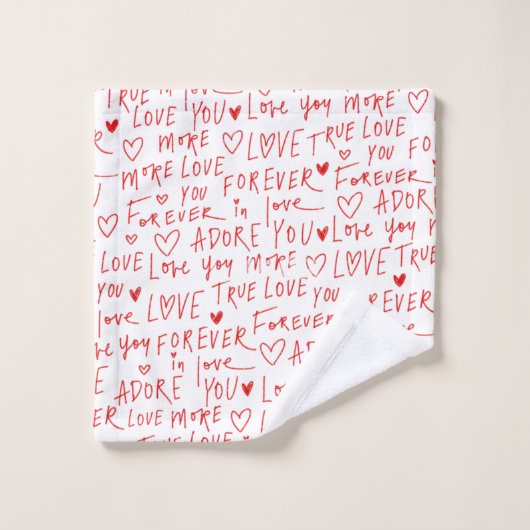 TRUE in love
LOVE YOU Love you MORE
MORE LOVE TRUE LOVE
MORE LOVE YOU FOREVER FOREVER YOU FOR
FOREVER in love ADORE
ADORE YOU Love you MORE
LOVE Love you MORE LOVE TRUE
YOU LOVE TRUE LOVE YOU FOREVER
love FOREVER FOREVER
Love you in love ADO
ADORE YOU Love
VER LOVE MORE LOVE
TRUE LOVE